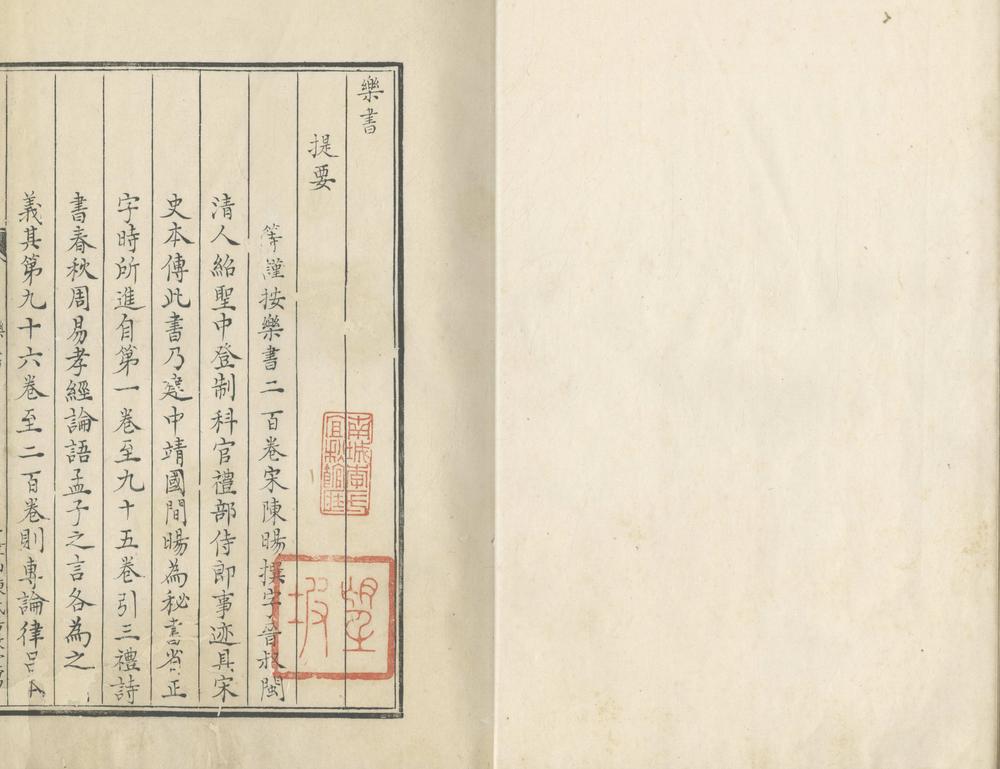 樂書
提要
等謹按樂書二百卷宋陳暘撰字晉叔閩
清人紹聖中登制科官禮部侍郎事迹具宋
史本傳此書乃建中靖國間暘為秘書省正
字時所進自第一卷至九十五卷引三禮詩
書春秋周易孝經論語孟子之言各為之
義其第九十六卷至二百卷則專論律呂
南城李氏
宜秋館藏